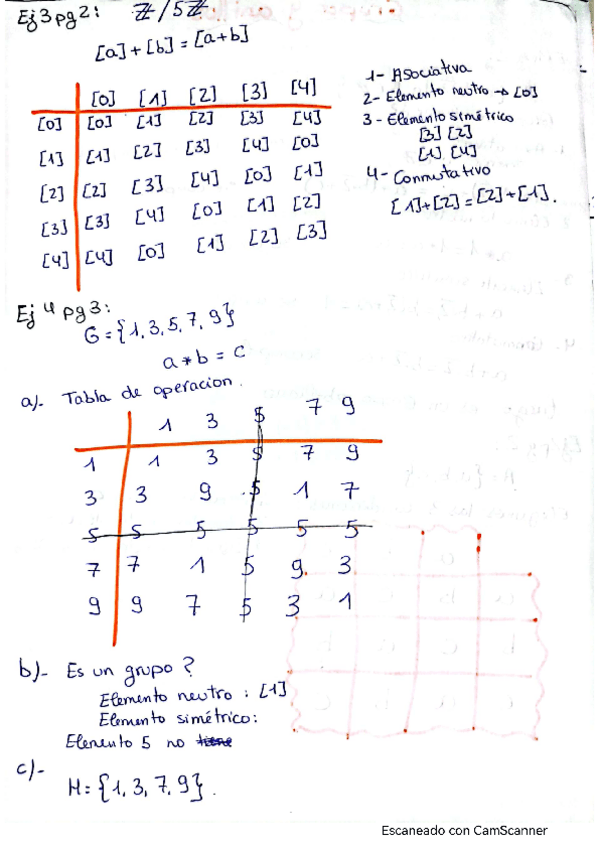 Ej 3 pg 2: ℤ/5ℤ
[a]+[b]=[a+b]
[0] [1] [2] [3] [4]
[0] [0] [1] [2] [3] [4]
[1] [1] [2] [3] [4] [0]
[2] [2] [3] [4] [0] [1]
[3] [3] [4] [0] [1] [2]
[4] [4] [0] [1] [2] [3]
1- Asociativa
2- Elemento neutro → [0]
3- Elemento simétrico
[3] [2]
[1] [4]
4- Conmutativo
[1]+[2]=[2]+[1].
Ej 4 pg 3:
G={1,3,5,7,9}
a * b = c
a)- Tabla de operacion.
1 3 5 7 9
1 1 3 5 7 9
3 3 9 5 1 7
5 5 5 5 5 5
7 7 1 5 9 3
9 9 7 5 3 1
b)- Es un grupo?
Elemento neutro: [1]
Elemento simétrico:
Elemento 5 no tiene
c)-
H={1,3,7,9}.
Escaneado con CamScanner